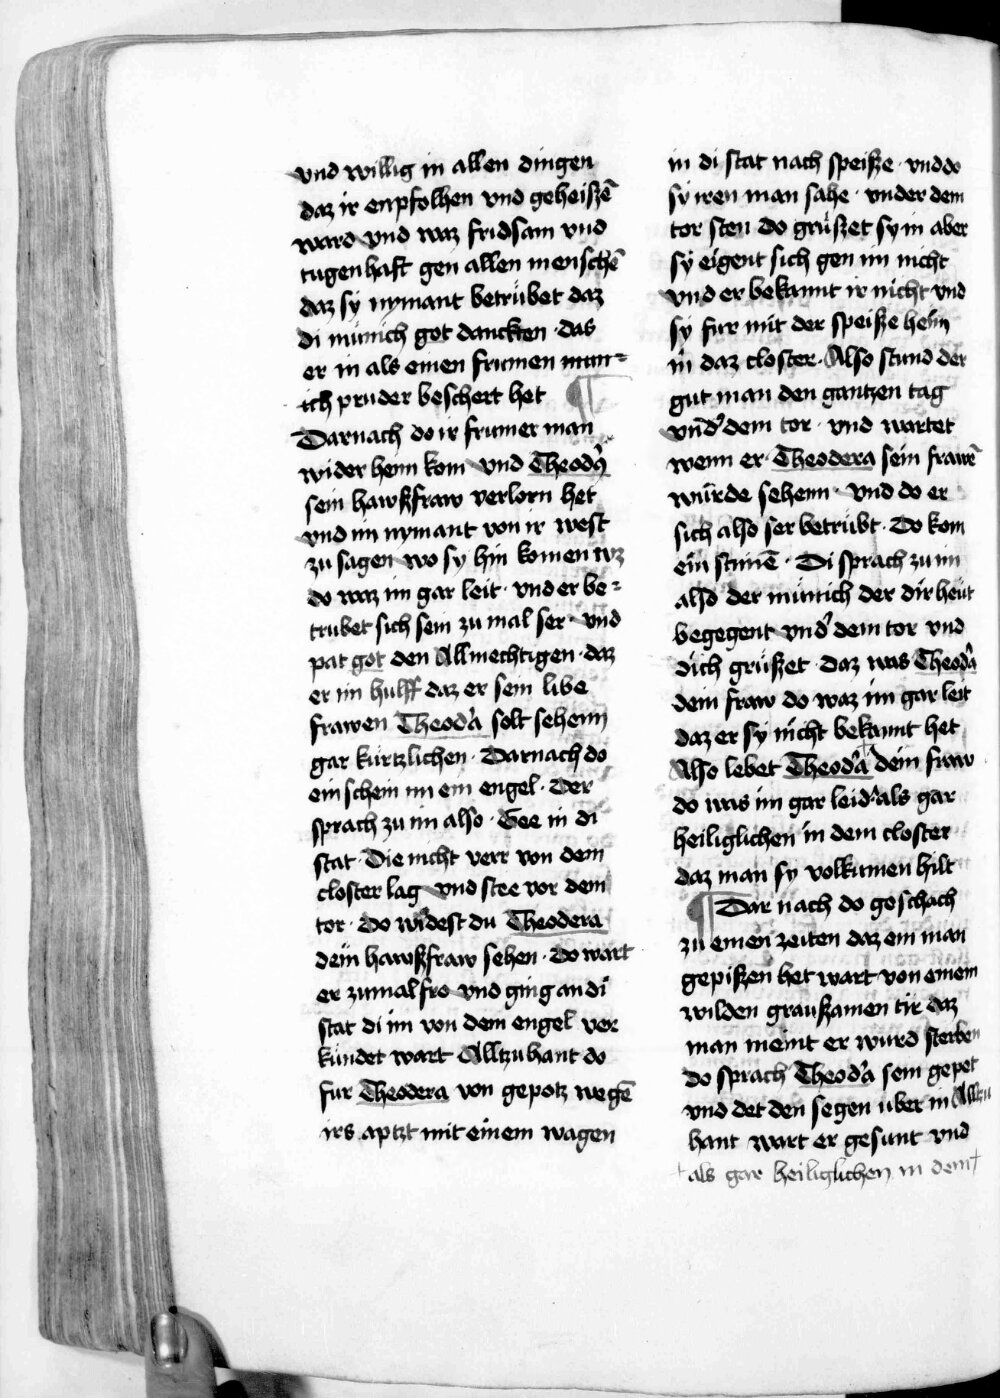 vnd willig in allen dingen
daz ir enpfolhen vnd geheiszē
ward vnd waz fridsam vnd
tugenhaft gen allen menschē
daz sy nymant betrübet daz
di münich got danckten · das
er in als einen frumen mun=
ich pruder beschert het ¶
Darnach do ir frumer man
wider heim kom vnd Theod'a
sein hawßfraw verlorn het
vnd im nymant von ir west
zu sagen wo sy hin komen wz
do waz im gar leit · vnd er be=
trubet sich sein zu mal ser · vnd
pat got den Allmechtigen · daz
er im hulff daz er sein libe
frawen Theod'a solt sehenn
gar kürtzlichen · Darnach do
ein schein im ein engel · Der
sprach zu im also · Gee in di
stat · Die nicht verr von dem
closter lag vnd stee vor dem
tor · Do widest du Theodera
dein hawßfraw sehen · Do wart
er zumal fro vnd ging an di
stat di im von dem engel ver
kündet wart Alltzu hant do
fur Theodera von gepotz wegē
irs aptzt mit einem wagen
in di stat nach speisze · vnd do
sy iren man sahe · vnder dem
tor sten do grüszet sy in aber
sy eigent sich gen im nicht
vnd er bekannt ir nicht vnd
sy fur mit der speisze heim
in daz closter · Also stund der
gut man den gantzen tag
vnd' dem tor · vnd wartet
wenn er · Theodera sein frawē
würde sehenn · vnd do er
sich also ser betrübt · Do kom
ein stimē · Di sprach zu im
also der münich der dir heut
begegent vnd' dem tor vnd
dich grüszet · Daz was Theod'a
dein fraw do waz im gar leit
daz er sy nicht bekannt het
Also lebet Theod'a dein fraw
do was im gar leid als gar
heiliglichen in dem closter
daz man sy volkumen hilt
¶ Dar nach do geschach
zu einen zeiten daz ein man
gepiszen het wart von einem
wilden grauszamen tir daz
man meint er wurd sterben
do sprach Theod'a sein gepet
vnd det den segen uber in Alltzu
hant wart er gesunt vnd
† als gar heiliglichen in dem †